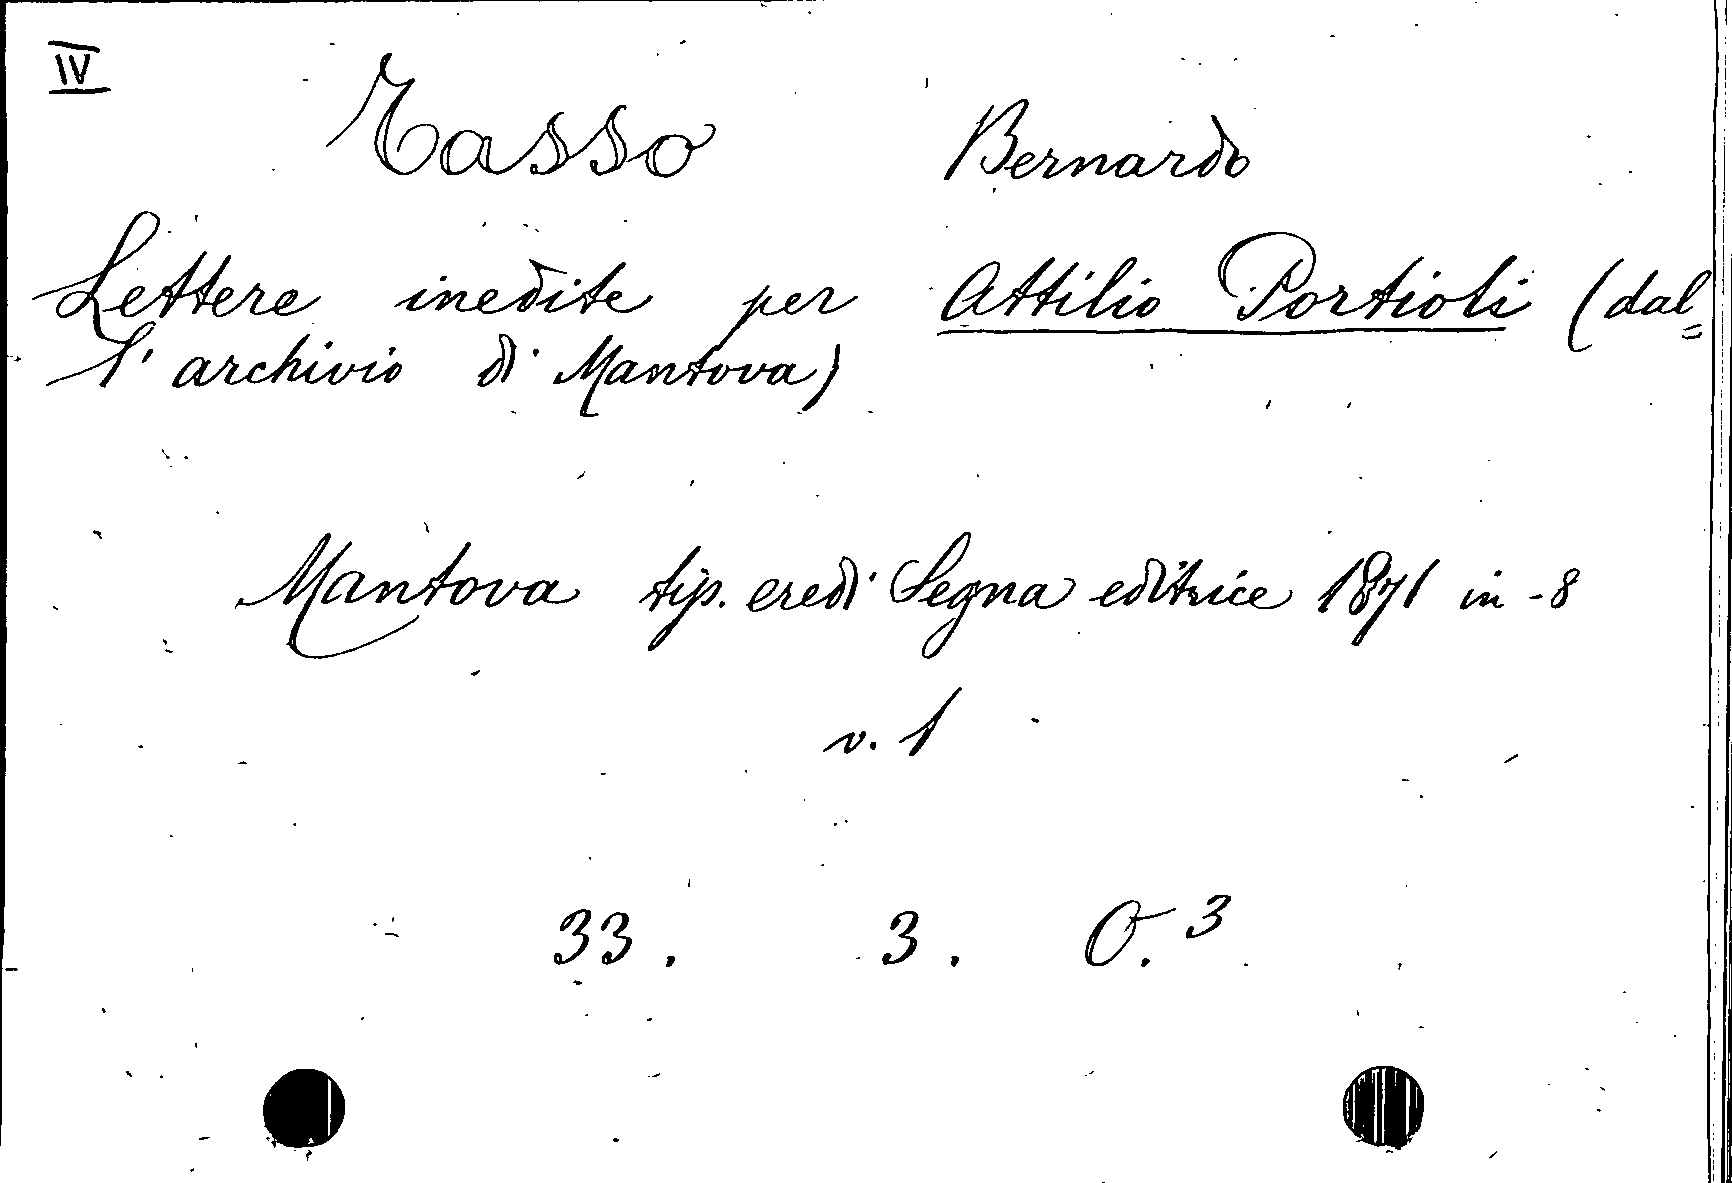 IV
Tasso Bernardo
Lettere inedite per Attilio Portioli (dal=
l'archivio di Mantova)
Mantova tip. eredi Segna editrice 1871 in-8
v. 1
33. 3. O.3